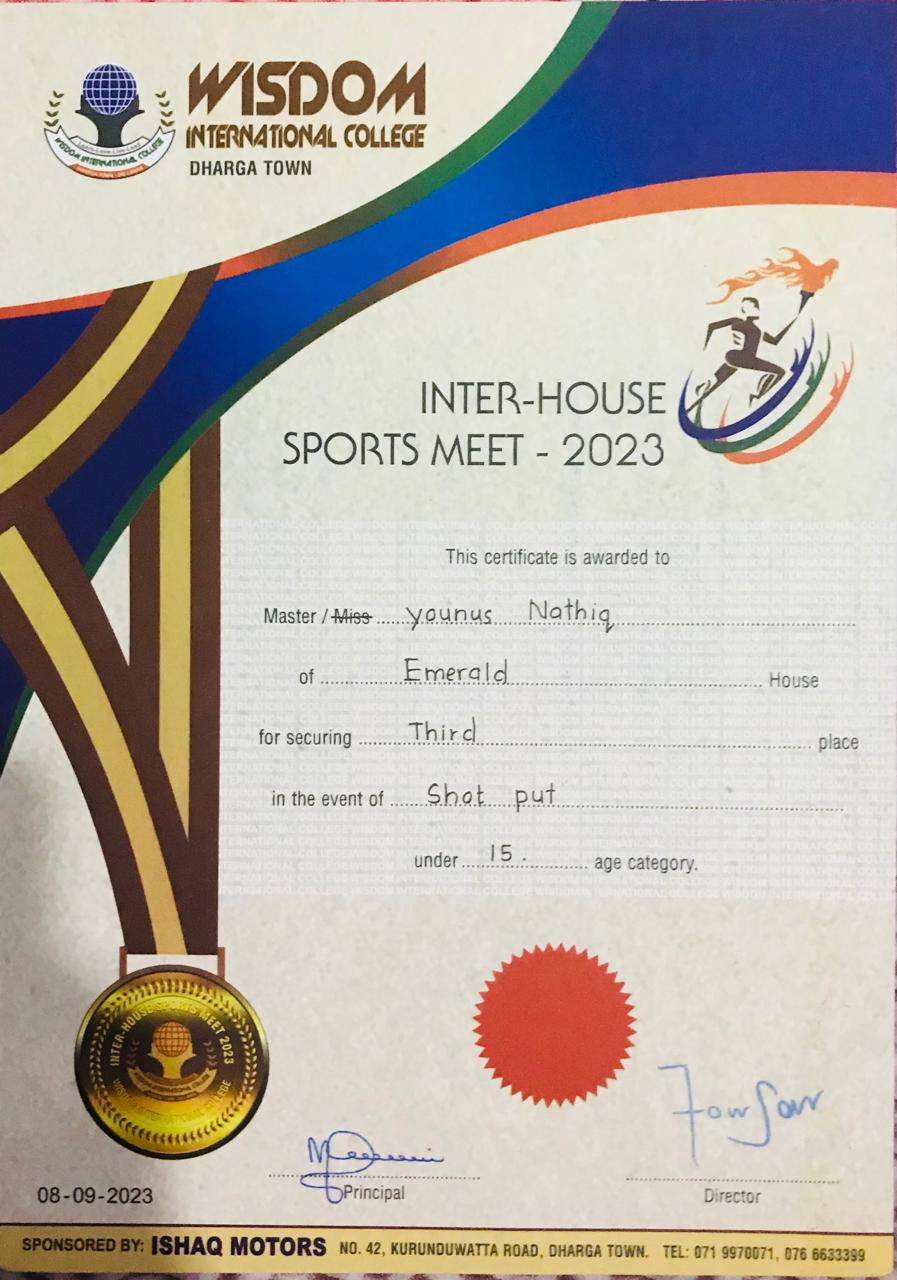 WISDOM
INTERNATIONAL COLLEGE
DHARGA TOWN
WISDOM INTERNATIONAL COLLEGE
INTER-HOUSE
SPORTS MEET - 2023
This certificate is awarded to
Master / Miss younus Nathiq
of Emerald House
for securing Third place
in the event of Shot put
under 15. age category.
INTER-HOUSE SPORTS MEET 2023
WISDOM INTERNATIONAL COLLEGE
08-09-2023
Principal
Director
SPONSORED BY: ISHAQ MOTORS NO. 42, KURUNDUWATTA ROAD, DHARGA TOWN. TEL: 071 9970071, 076 6633399